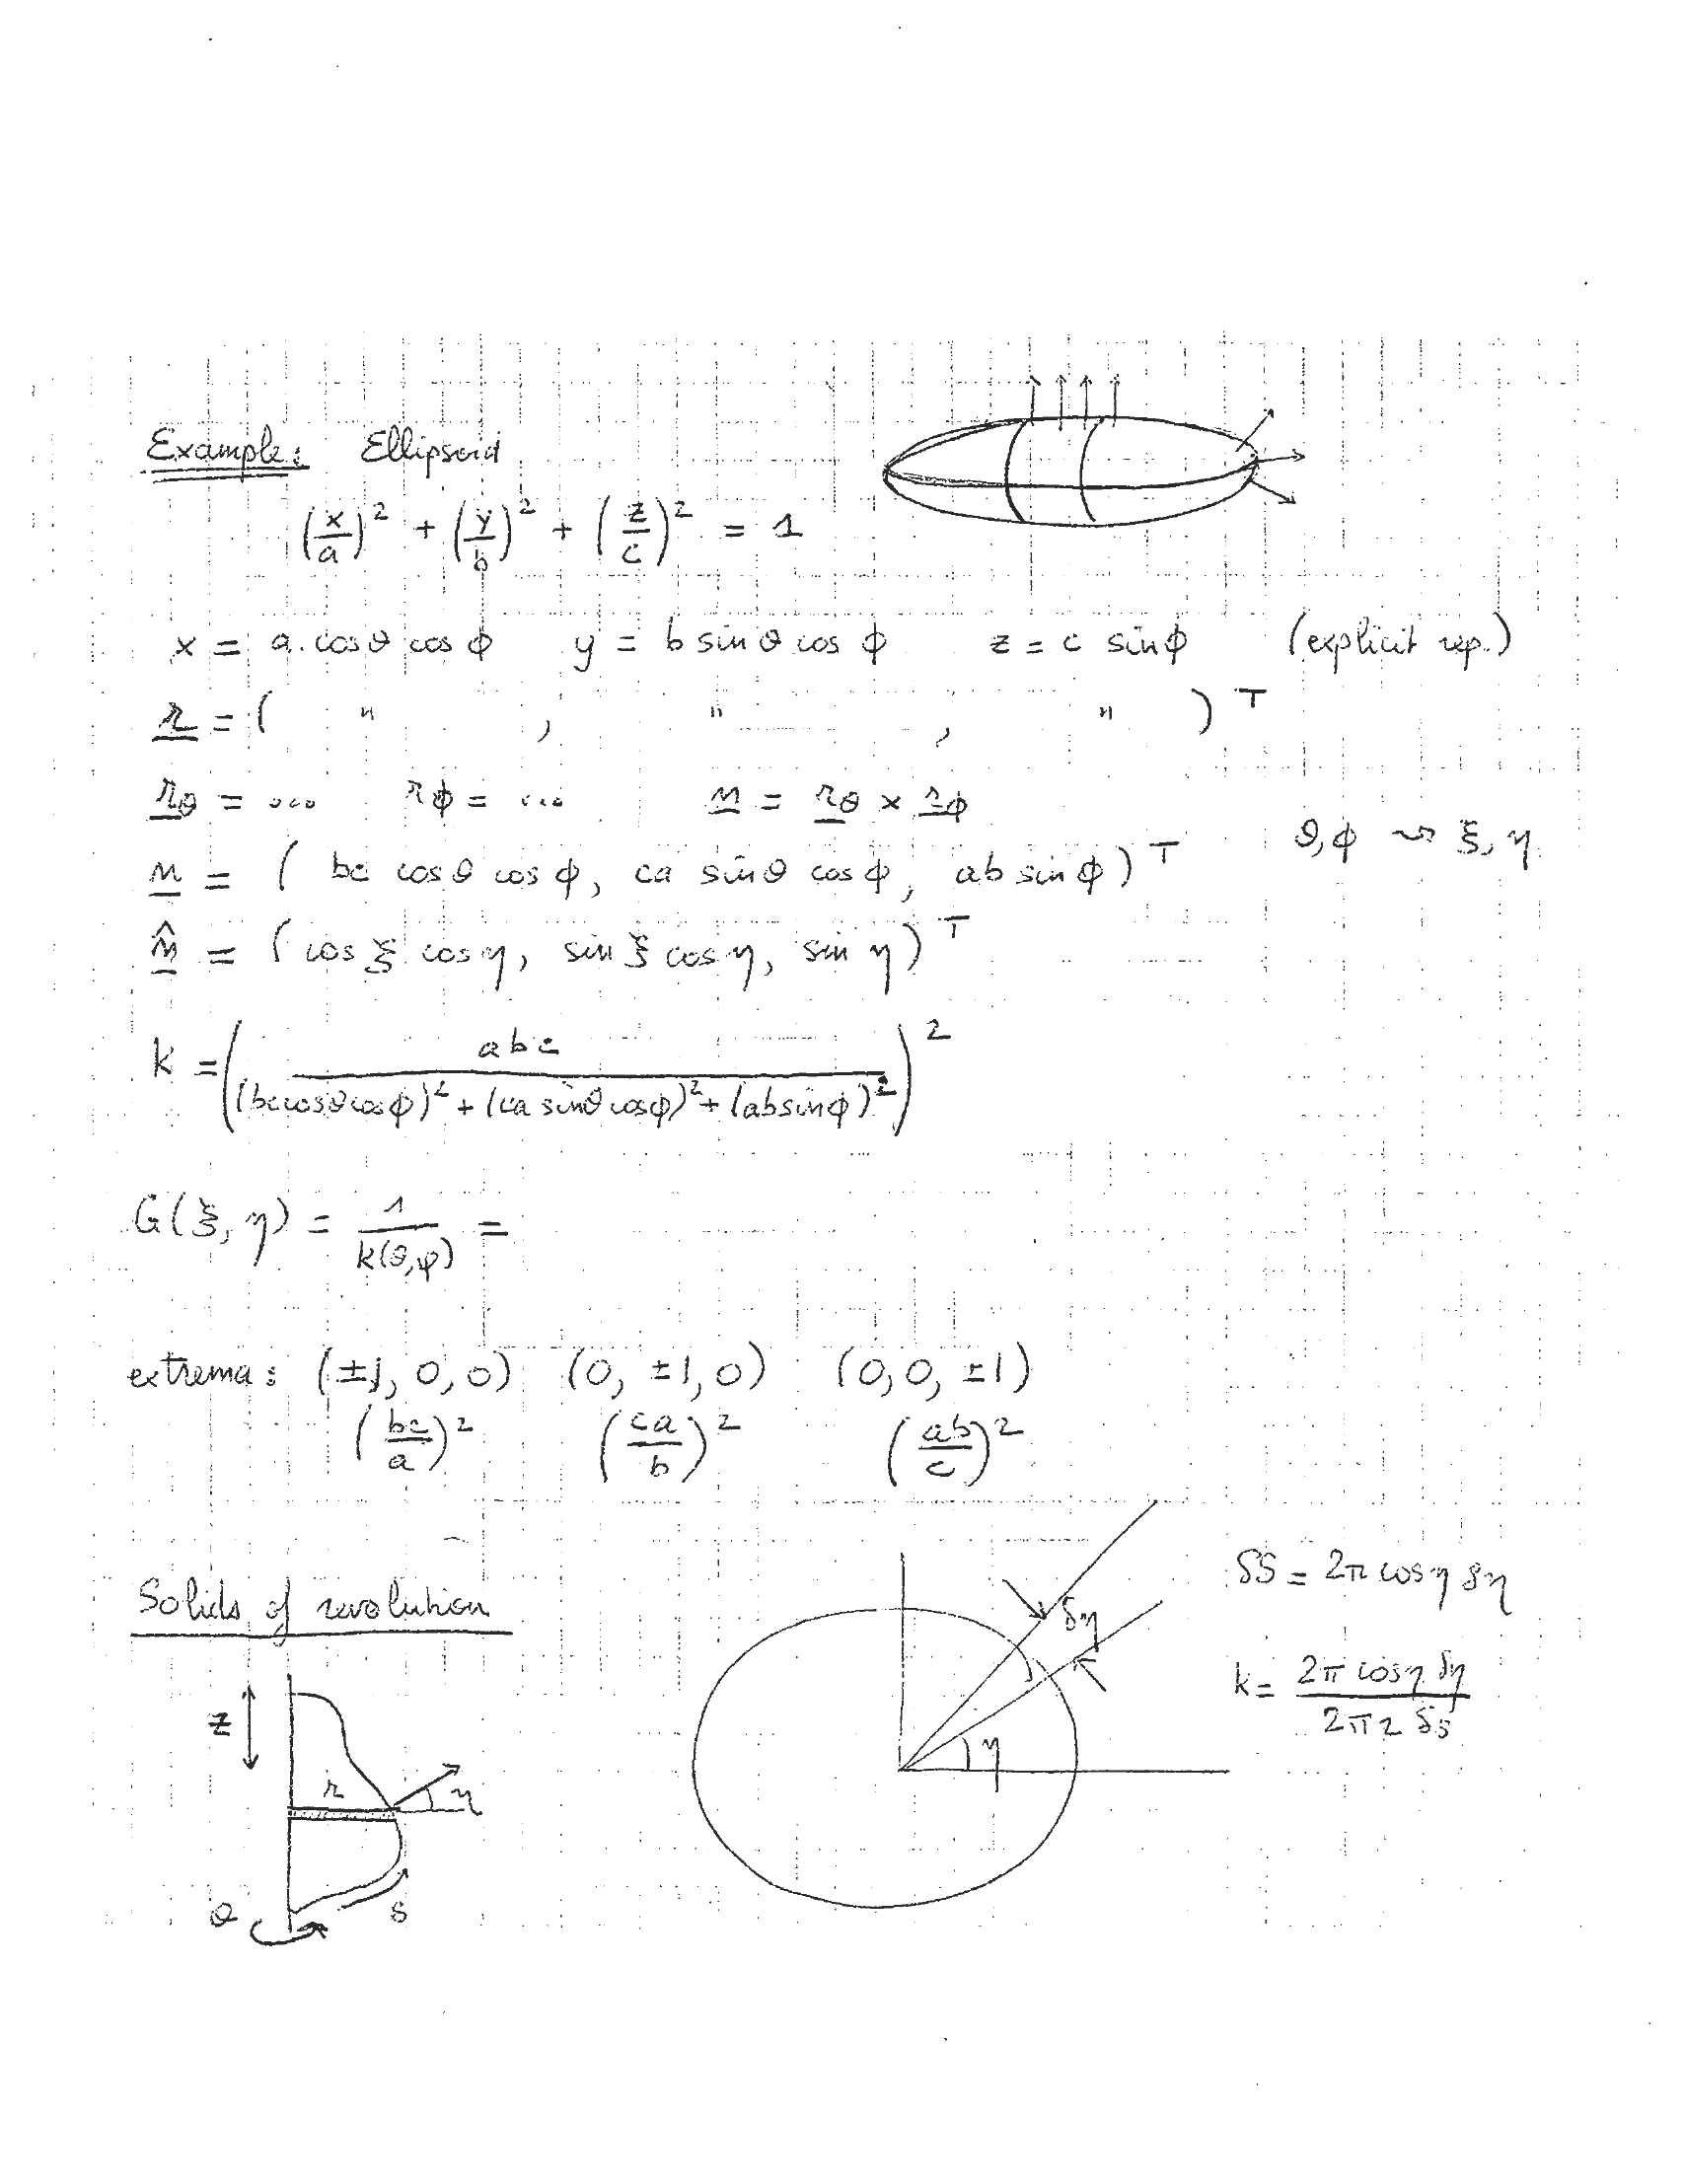 Example: Ellipsoid
(x/a)² + (y/b)² + (z/c)² = 1
x = a.cosθ cos ϕ y = b sin θ cos ϕ z = c sinϕ (explicit rep.)
r = ( " , " , " )ᵀ
r_θ = ... r_ϕ = ... n = r_θ × r_ϕ
θ,ϕ ⇝ ξ, η
n = ( bc cosθ cos ϕ, ca sinθ cos ϕ, ab sin ϕ)ᵀ
n̂ = (cos ξ cos η, sin ξ cos η, sin η)ᵀ
k = (abc / ((bc cosθ cos ϕ)² + (ca sinθ cosϕ)² + (ab sin ϕ)²))²
G(ξ, η) = 1/k(θ,φ) =
extrema: (±1, 0, 0) (0, ±1, 0) (0, 0, ±1)
(bc/a)² (ca/b)² (ab/c)²
Solids of revolution
δS = 2π cosη δη
δη
k = 2π cosη δη / 2π r δs
z
η
r
η
θ
s